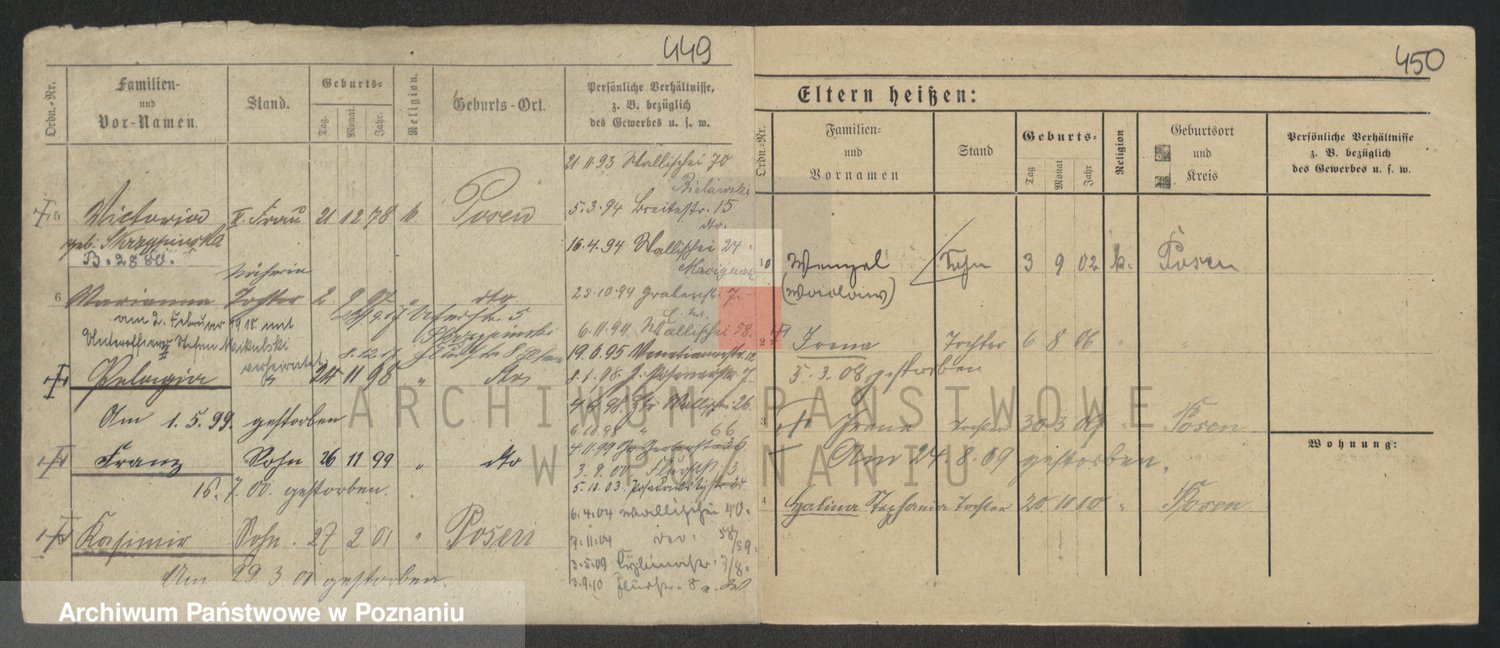 449
Ordn.-Nr.
Familien-
und
Vor-Namen.
Stand.
Geburts-
Tag.
Monat.
Jahr.
Religion.
Geburts-Ort.
Persönliche Verhältnisse,
z. B. bezüglich
des Gewerbes u. s. w.
21.11.93 Wallischei 70
Bielawski
5.3.94 Breitestr. 15
dto.
16.4.94 Wallischei 24
5 Victoria II. Frau 21 12 78 k Posen
geb. Skrzypinska
B. 2880.
Näherin
6 Marianna Tochter 2 9 97 " dto
25.10.94 Graberstr. 7.
am 2. Februar 1918 mit
Unteroffizier Stefan Mikulski
verheiratet
Skrzypinski
6.11.94 Wallischei 58.
19.6.95 Venetianerstr. 12
Pelagia " 24 11 98 " dto
Am 1.5.99. gestorben
4.11.99 Gr. Gerberstr. 36
Franz Sohn 26 11 99 " dto
3.9.00. Flurstr. 3.
16.7.00. gestorben.
6.4.04 Wallischei 40.
Kasimir Sohn. 27 2 01 " Posen
7.11.04 dto. 58/59.
Am 29.3.01 gestorben.
3.9.10 Flurstr. 8
450
Eltern heißen:
Ordn.-Nr.
Familien-
und
Vornamen
Stand
Geburts-
Tag
Monat
Jahr
Religion
Geburtsort
und
Kreis
Persönliche Verhältnisse
z. B. bezüglich
des Gewerbes u. s. w.
Wenzel Sohn 3 9 02 k. Posen
(Waclaw)
2 Irena Tochter 6 8 06 " "
5.3.08 gestorben
3 Irene Tochter 30 3 09 " Posen
Am 24.8.09 gestorben.
Wohnung:
4 Halina Stephania Tochter 20 10 10 " Posen
ARCHIWUM PAŃSTWOWE
W POZNANIU
Archiwum Państwowe w Poznaniu